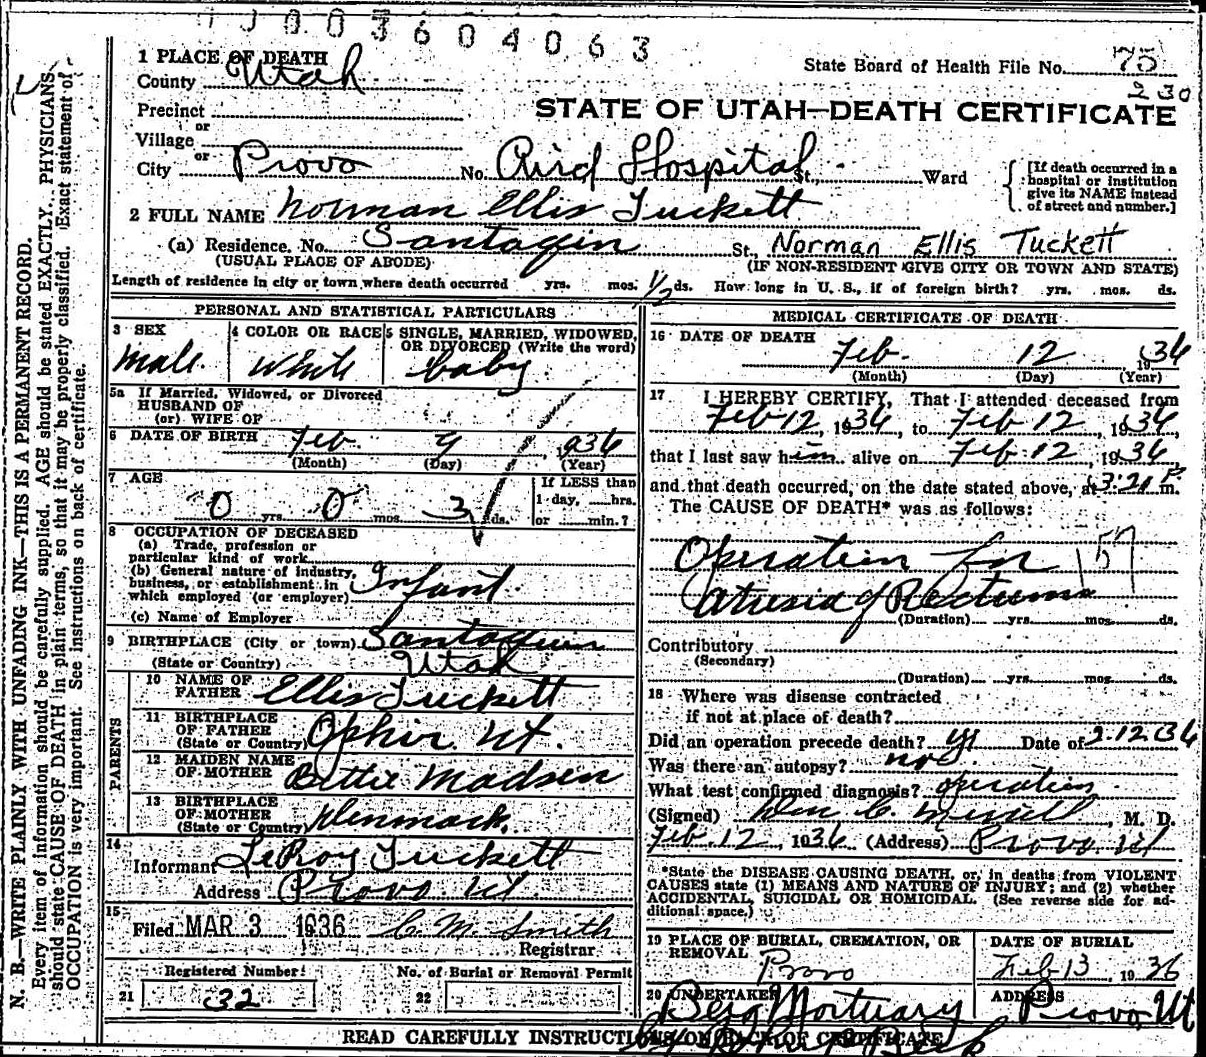 0 0 0 3 6 0 4 0 6 3
State Board of Health File No. 75
230
STATE OF UTAH—DEATH CERTIFICATE
1 PLACE OF DEATH
County Utah
Precinct
or
Village
or
City Provo No. Aird Hospital St., Ward
[If death occurred in a
hospital or institution
give its NAME instead
of street and number.]
2 FULL NAME Norman Ellis Tuckett
(a) Residence. No. Santaquin St., Norman Ellis Tuckett
(USUAL PLACE OF ABODE) (IF NON-RESIDENT GIVE CITY OR TOWN AND STATE)
Length of residence in city or town where death occurred yrs. mos. 1/2 ds. How long in U. S., if of foreign birth? yrs. mos. ds.
PERSONAL AND STATISTICAL PARTICULARS
3 SEX
Male
4 COLOR OR RACE
White
5 SINGLE, MARRIED, WIDOWED,
OR DIVORCED (Write the word)
baby
5a If Married, Widowed, or Divorced
HUSBAND OF
(or) WIFE OF
6 DATE OF BIRTH Feb 9 1936
(Month) (Day) (Year)
7 AGE
0 yrs. 0 mos. 3 ds.
If LESS than
1 day, hrs.
or min.?
8 OCCUPATION OF DECEASED
(a) Trade, profession or
particular kind of work
(b) General nature of industry,
business, or establishment in
which employed (or employer) Infant
(c) Name of Employer
9 BIRTHPLACE (City or town) Santaquin
(State or Country) Utah
PARENTS
10 NAME OF
FATHER Ellis Tuckett
11 BIRTHPLACE
OF FATHER
(State or Country) Ophir Ut.
12 MAIDEN NAME
OF MOTHER Bettie Madsen
13 BIRTHPLACE
OF MOTHER
(State or Country) Denmark.
14
Informant LeRoy Tuckett
Address Provo. Ut.
15
Filed MAR 3 1936 C. M. Smith
Registrar
Registered Number
21 32
No. of Burial or Removal Permit
22
MEDICAL CERTIFICATE OF DEATH
16 DATE OF DEATH
Feb. 12 1936
(Month) (Day) (Year)
17 I HEREBY CERTIFY, That I attended deceased from
Feb 12, 1936, to Feb 12, 1936,
that I last saw him alive on Feb. 12, 1936,
and that death occurred, on the date stated above, at 3:21 P. m.
The CAUSE OF DEATH* was as follows:
Operation for 157
Atresia of Rectum
(Duration) yrs. mos. ds.
Contributory
(Secondary)
(Duration) yrs. mos. ds.
18 Where was disease contracted
if not at place of death?
Did an operation precede death? yes Date of 2.12.36
Was there an autopsy? no
What test confirmed diagnosis? operation
(Signed) C. Merrill, M. D.
Feb. 12 1936 (Address) Provo. Ut
*State the DISEASE CAUSING DEATH, or, in deaths from VIOLENT
CAUSES state (1) MEANS AND NATURE OF INJURY; and (2) whether
ACCIDENTAL, SUICIDAL OR HOMICIDAL. (See reverse side for ad-
ditional space.)
19 PLACE OF BURIAL, CREMATION, OR
REMOVAL
Provo
DATE OF BURIAL
Feb 13, 1936
20 UNDERTAKER
Berg Mortuary
ADDRESS
Provo, Ut
READ CAREFULLY INSTRUCTIONS ON BACK OF CERTIFICATE
N. B.—WRITE PLAINLY WITH UNFADING INK—THIS IS A PERMANENT RECORD.
Every item of information should be carefully supplied. AGE should be stated EXACTLY. PHYSICIANS
should state CAUSE OF DEATH in plain terms, so that it may be properly classified. Exact statement of
OCCUPATION is very important. See instructions on back of certificate.